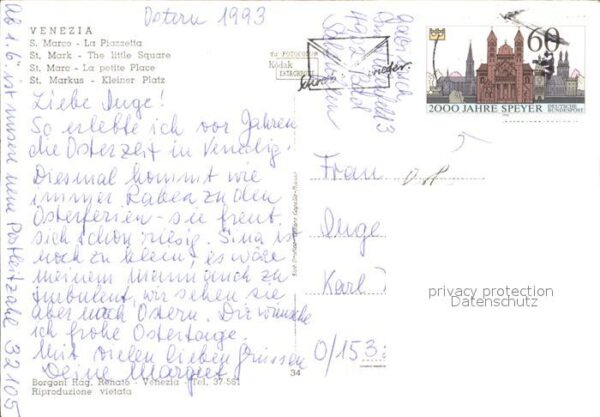 Ostern 1993
VENEZIA
S. Marco - La Piazzetta
St. Mark - The little Square
St. Marc - La petite Place
St. Markus - Kleiner Platz
Liebe Inge!
So erlebte ich vor Jahren
die Osterzeit in Venedig!
Diesmal kommt wie
immer Raben zu den
Osterferien - sie freut
sich schon riesig. Sina ist
noch zu klein, es wäre
meinem Mann auch zu
turbulent, wir sehen sie
aber nach Ostern. Dir wünsche
ich frohe Ostertage.
Mit vielen lieben Grüssen
Deine Margret
Borgoni Rag. Renato - Venezia - Tel. 37 561
Riproduzione vietata
34
Ab 1.6. ist unsere neue Postleitzahl 32105
Kodak
Schreib
wieder
60
2000 JAHRE SPEYER
DEUTSCHE
BUNDESPOST
Frau
Inge
Karl
0/153
privacy protection
Datenschutz